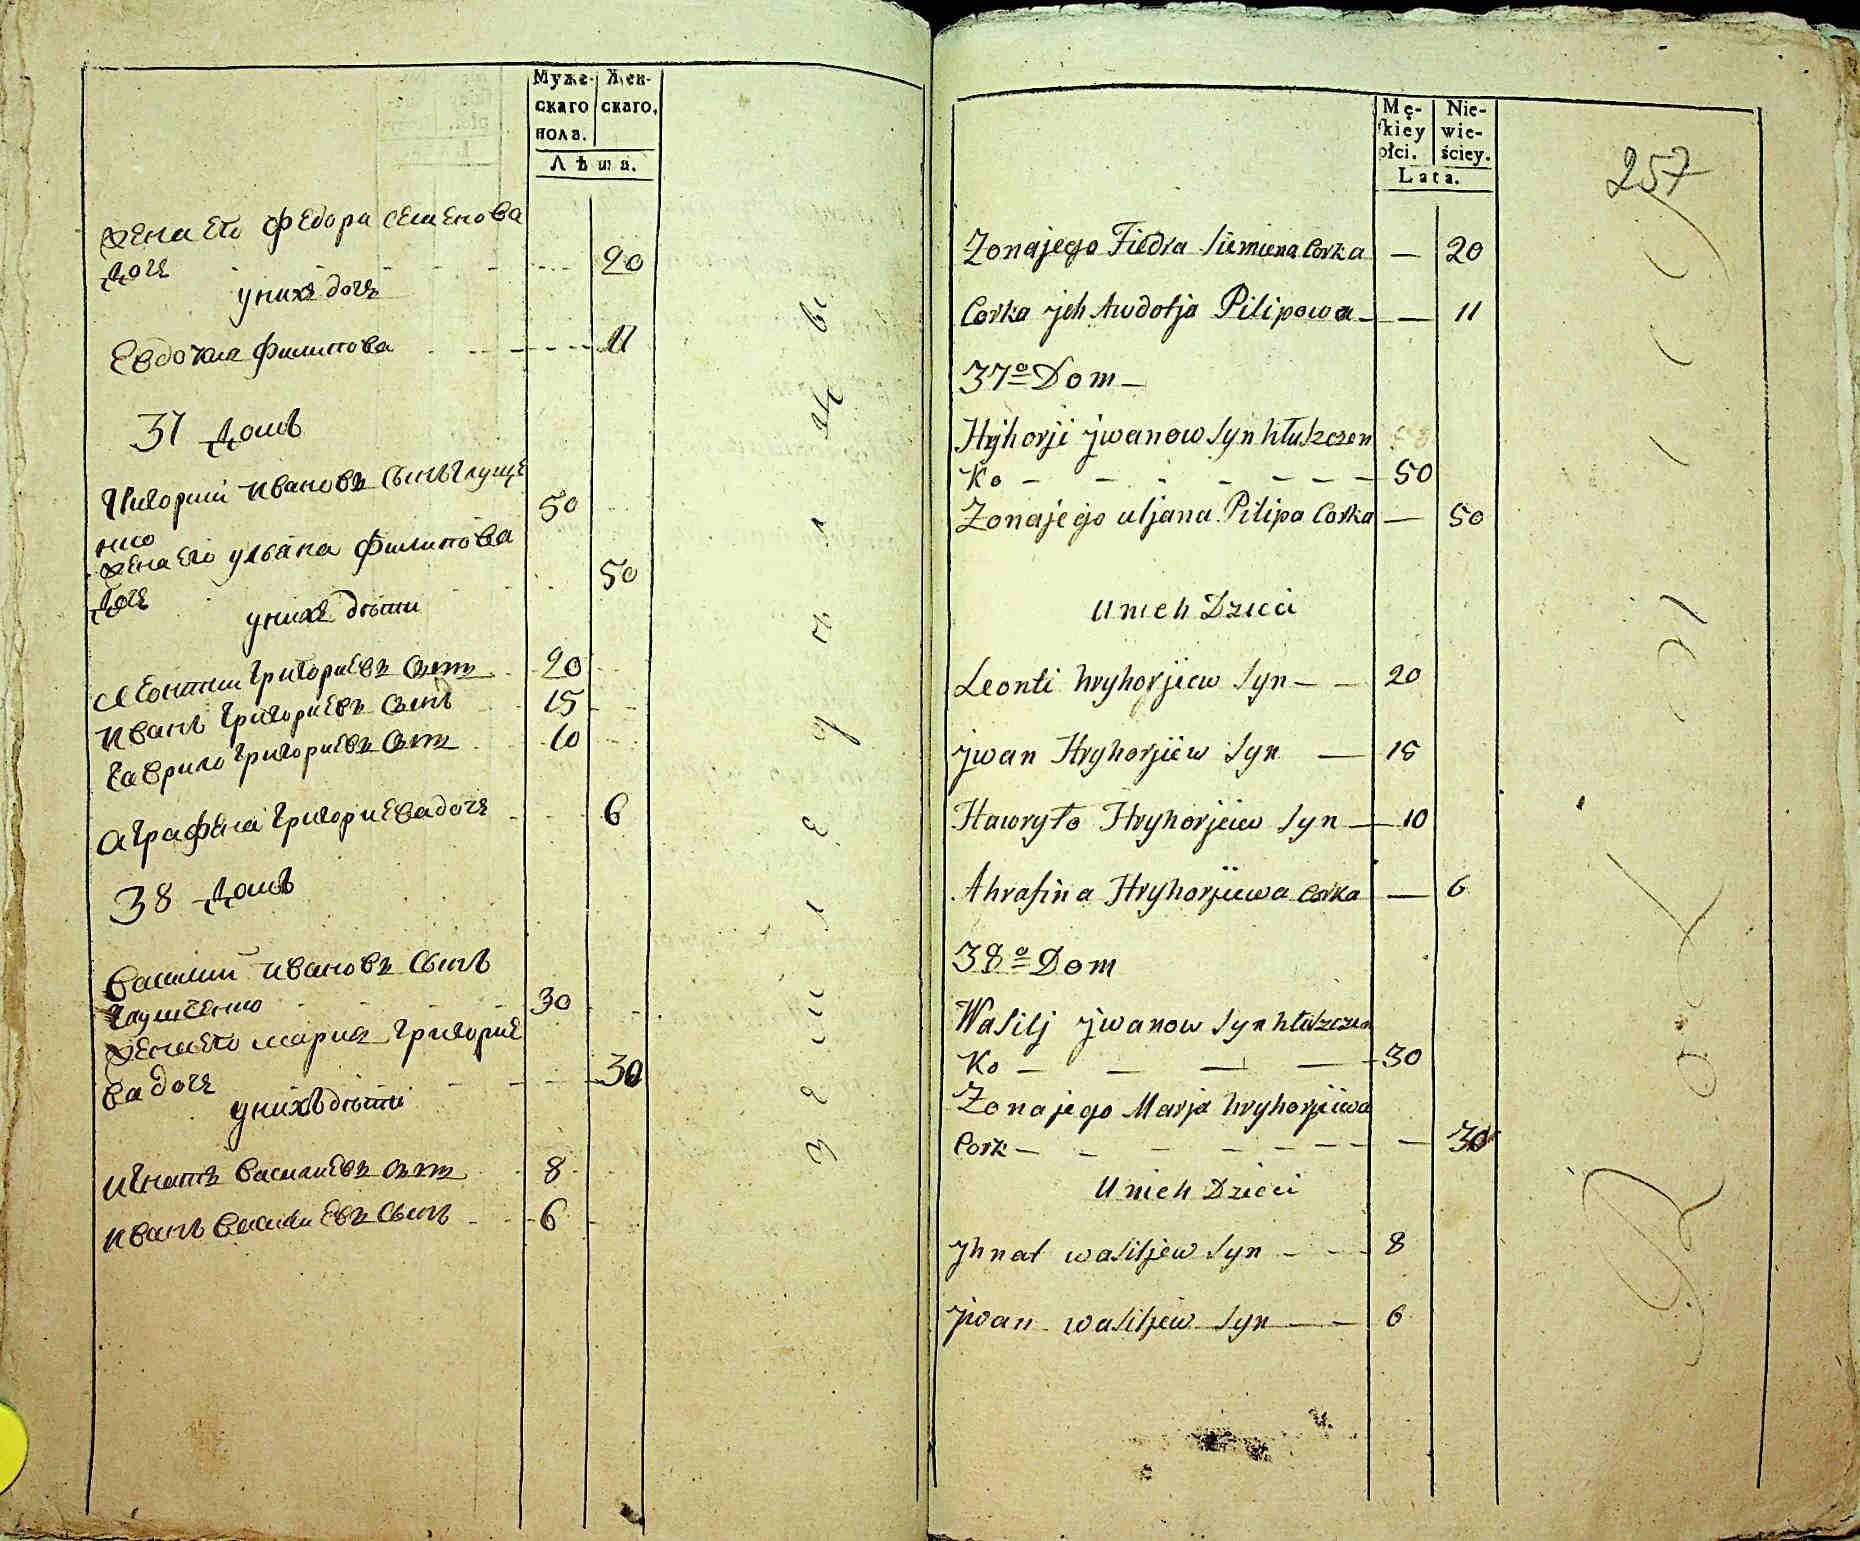 Муже-
скаго
пола.
Жен-
скаго,
Лѣта.
жена его Федора семенова
дочь 20
у нихъ дочь
Евдокия Филипова 11
37 домъ
Григорий Ивановъ сынъ Глуще
нко 50
жена его Ульяна Филипова
дочь 50
у нихъ дѣти
Леонтии Григориевъ сынъ 20
Иванъ Григориевъ сынъ 15
Гаврило Григориевъ сынъ 10
Аграфена Григориева дочь 6
38 домъ
Василий Ивановъ сынъ
Глущенко 30
жена его Мария Григорие
ва дочь 30
у нихъ дѣти
Игнатъ Васильевъ сынъ 8
Иванъ Васильевъ сынъ 6
Mę-
skiey
płci.
Nie-
wie-
ściey.
Lata.
257
Żona jego Fiedra Siemiena Corka — 20
Corka jch Awdotja Pilipowa — — 11
37o Dom —
Hryhorji jwanow Syn hłuszczen
Ko — — — — — — 50
Żona jego uljana Pilipa Corka — 50
U nich Dzieci
Leonti hryhorjiew Syn — — 20
jwan Hryhorjiew Syn — 15
Hawryło Hryhorjeiew Syn — 10
Ahrafina Hryhorjiewa Corka — 6
38o Dom
Wasilj jwanow Syn hłuszczen
Ko — — — — 30
Żona jego Marja hryhorjiewa
Cork — — — — — — — 30
U nich Dzieci
jhnat wasiljew Syn — — — 8
jwan wasiljew Syn — — 6